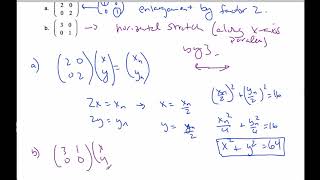 a. (2 0
0 2) (1 0
0 1) enlargement by factor 2.
b. (3 0
0 1) -> horizontal stretch (along x-axis
parallel)
by 3.
a) (2 0
0 2) (x
y) = (x_n
y_n)
2x = x_n → x = x_n/2
2y = y_n y = y_n/2
(x_n/2)² + (y_n/2)² = 16
x_n²/4 + y_n²/4 = 16
x² + y² = 64
b) (3 1
0 0) (x
y